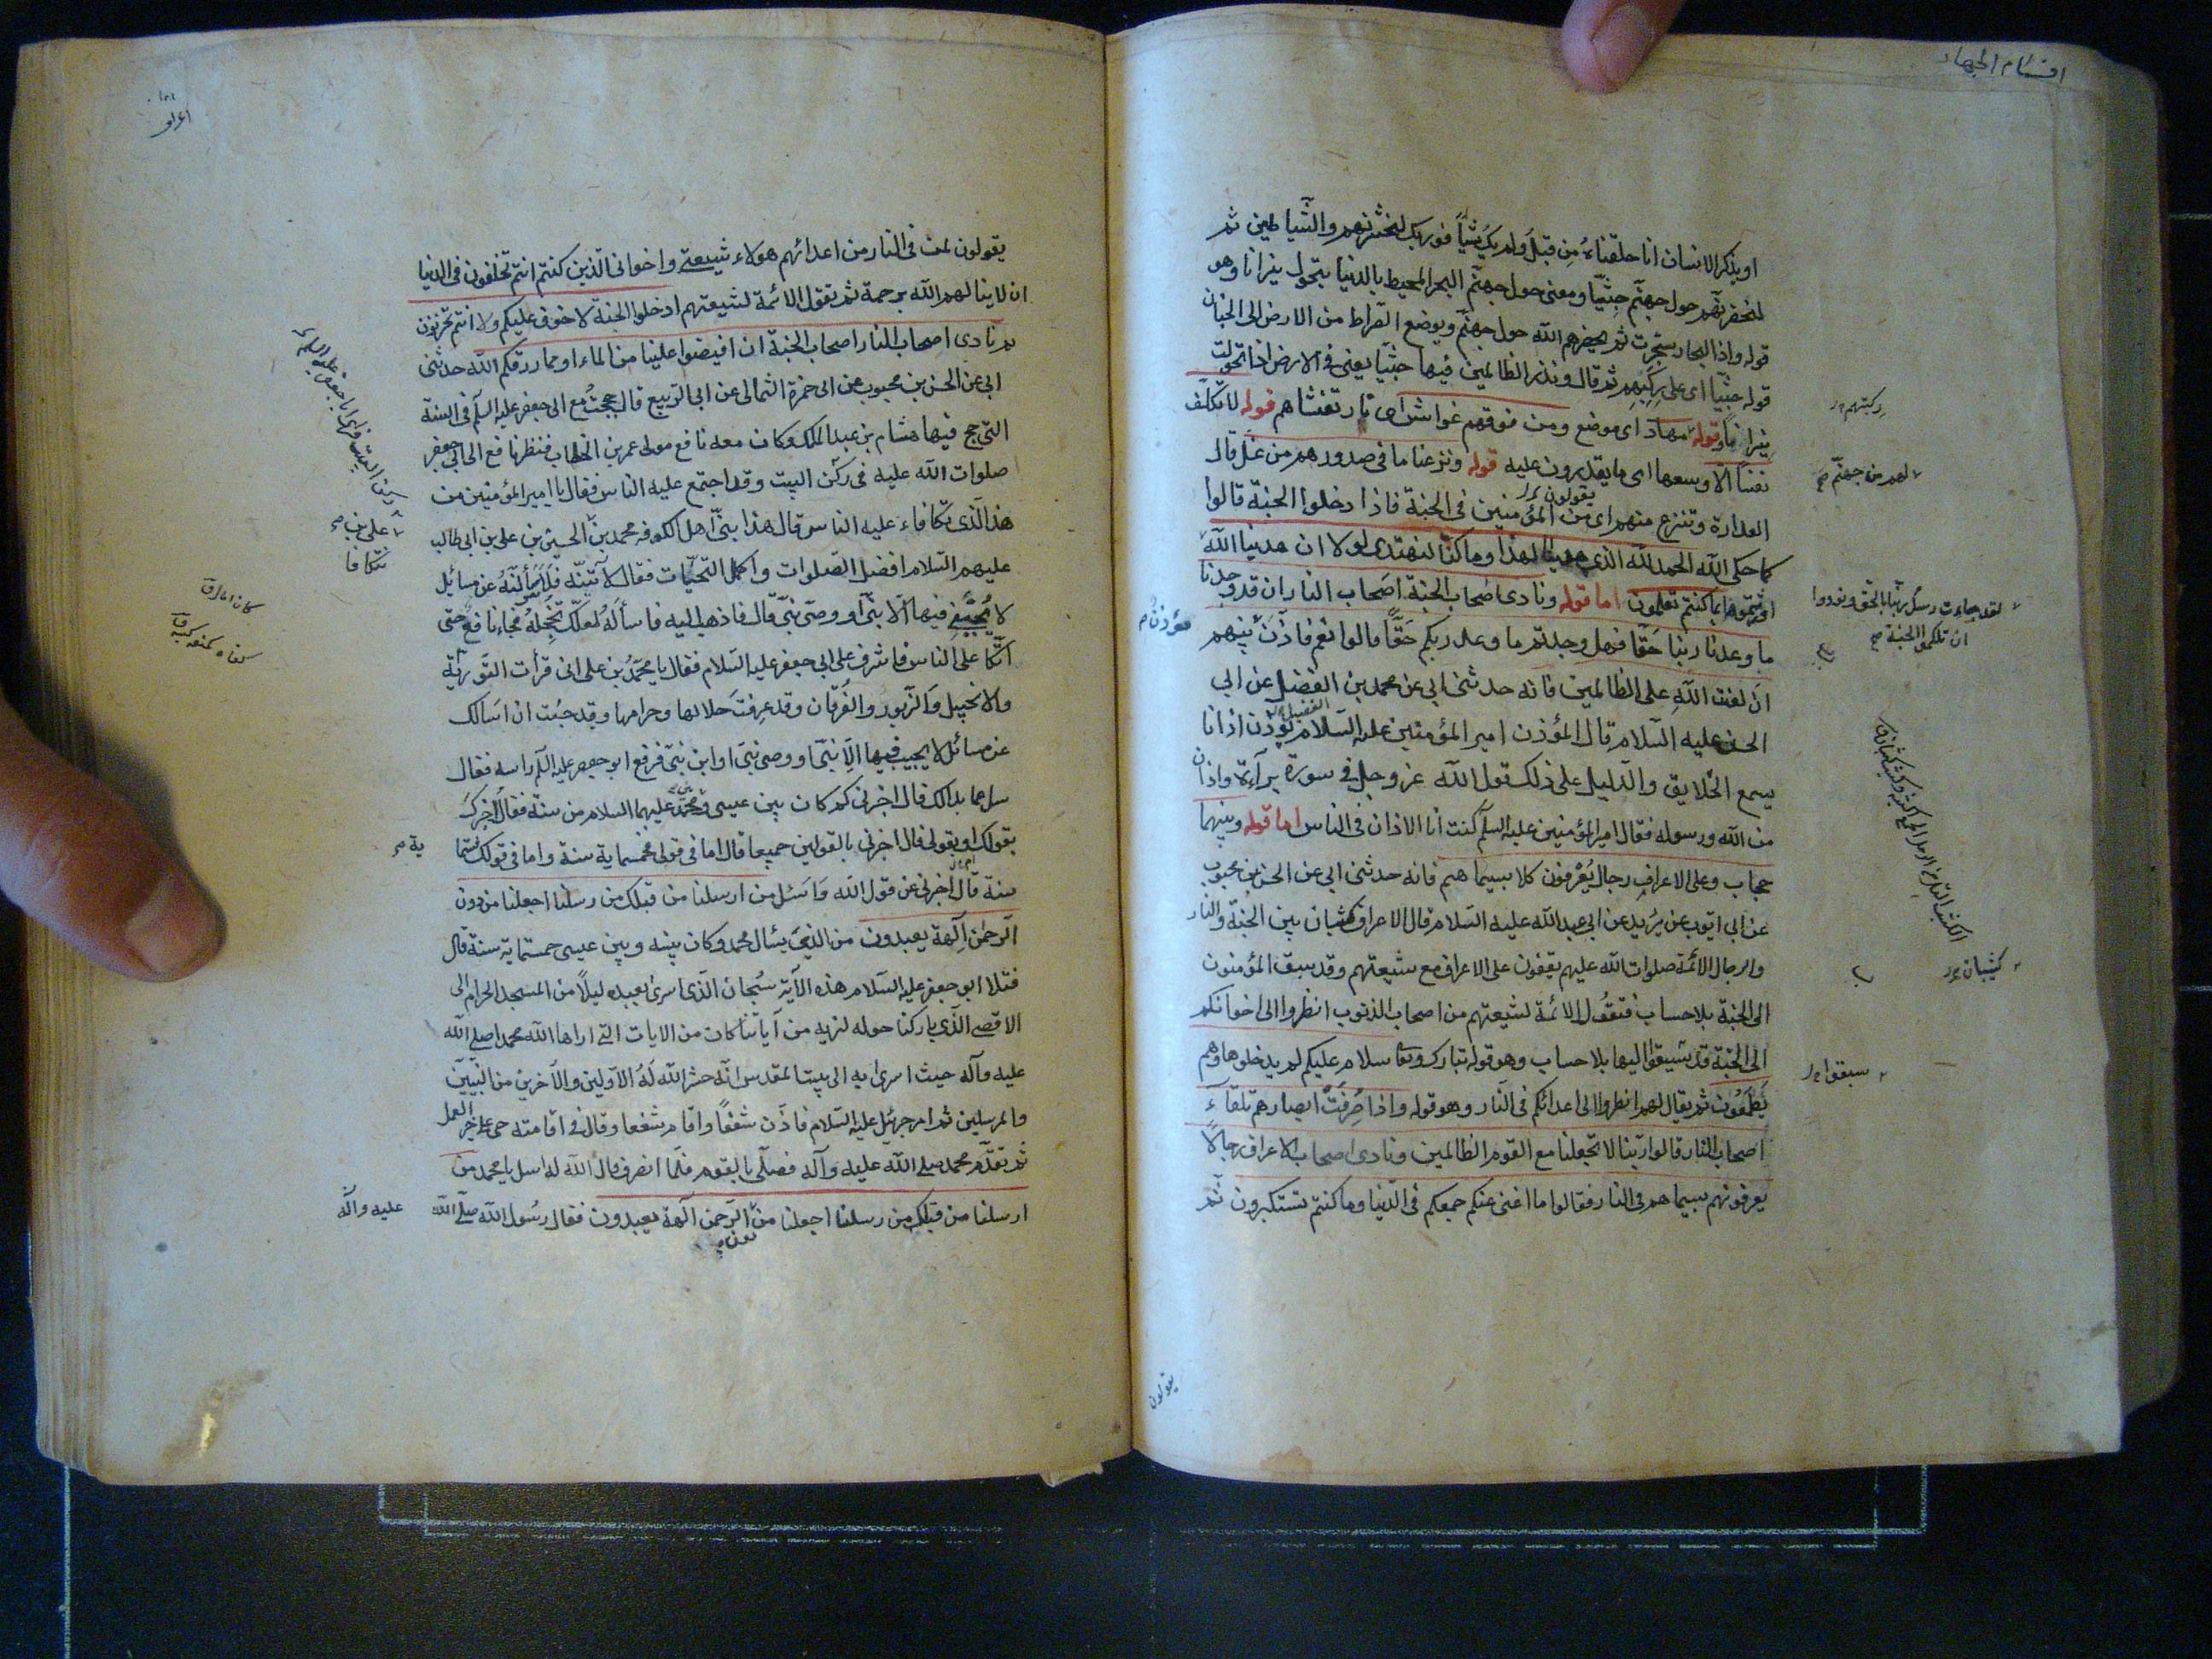 اقسام الجهاد
او يذكر الانسان انا خلقناه من قبل ولم يك شيئا فوربك لنحشرنهم والشياطين ثم
لنحضرنهم حول جهنم جثيا ومعنى حول جهنم البحر المحيط بالدنيا يتحول نيرانا وهو
قوله واذا البحار سجرت ثم يحضرهم الله حول جهنم ويوضع الصراط من الارض الى الجنان
قوله جثيا اى على ركبهم ثم قال ونذر الظالمين فيها جثيا يعنى فى الارض اذا تحولت
نيرانا وقوله مهاد اى موضع ومن فوقهم غواش اى نار تغشاهم قوله لا نكلف
نفسا الا وسعها اى ما يقدرون عليه قوله ونزعنا ما فى صدورهم من غل قال
العداوة وتنزع منهم اى من المؤمنين فى الجنة فاذا دخلوا الجنة قالوا
كما حكى الله الحمد لله الذى هدينا لهذا وما كنا لنهتدى لولا ان هدينا الله
اورثتموها بما كنتم تعملون اما قوله ونادى اصحاب الجنة اصحاب النار ان قد وجدنا
ما وعدنا ربنا حقا فهل وجدتم ما وعد ربكم حقا قالوا نعم فاذن بينهم
ان لعنت الله على الظالمين فانه حدثنى ابى عن محمد بن الفضل عن ابى
الحسن عليه السلام قال المؤذن امير المؤمنين عليه السلام يؤذن اذانا
يسمع الخلايق والدليل على ذلك قول الله عز وجل فى سورة براءة واذان
من الله ورسوله فقال امير المؤمنين عليه السلم كنت انا الاذان فى الناس اما قوله وبينهما
حجاب وعلى الاعراف رجال يعرفون كلا بسيماهم فانه حدثنى ابى عن الحسن بن محبوب
عن ابى ايوب عن بريد عن ابى عبد الله عليه السلام قال الاعراف كثبان بين الجنة والنار
والرجال الائمة صلوات الله عليهم يقفون على الاعراف مع شيعتهم وقد سبق المؤمنون
الى الجنة بلا حساب فتقول الائمة لشيعتهم من اصحاب الذنوب انظروا الى اخوانكم
الى الجنة قد سيقوا اليها بلا حساب وهو قوله تبارك وتعا سلام عليكم لم يدخلوها وهم
يطمعون ثم يقال لهم انظروا الى اعدائكم فى النار وهو قوله واذا صرفت ابصارهم تلقاء
اصحاب النار قالوا ربنا لا تجعلنا مع القوم الظالمين ونادى اصحاب الاعراف رجالا
يعرفونهم بسيماهم فى النار فقالوا ما اغنى عنكم جمعكم فى الدنيا وما كنتم تستكبرون ثم
يقولون
ركبتهم
لهم من جهنم صح
يقولون
لقد جاءت رسل ربنا بالحق ونودوا
ان تلكموا الجنة صح
مؤذن
الفضيل
كثيبان
سبقوا
يقولون لمن فى النار من اعدائهم هولاء شيعتى واخوانى الذين كنتم انتم تحلفون فى الدنيا
ان لا ينالهم الله برحمة ثم تقول الائمة لشيعتهم ادخلوا الجنة لا خوف عليكم ولا انتم تحزنون
ثم نادى اصحاب النار اصحاب الجنة ان افيضوا علينا من الماء او مما رزقكم الله حدثنى
ابى عن الحسن بن محبوب عن ابى حمزة الثمالى عن ابى الربيع قال حججت مع ابى جعفر عليه السلم فى السنة
التى حج فيها هشام بن عبد الملك وكان معه نافع مولى عمر بن الخطاب فنظر نافع الى ابى جعفر
صلوات الله عليه فى ركن البيت وقد اجتمع عليه الناس فقال يا امير المؤمنين من
هذا الذى تكافاء عليه الناس قال هذا نبى اهل الكوفه محمد بن الحسين بن على بن ابى طالب
عليهم السلام افضل الصلوات واكمل التحيات فقال لآتينه فلاسألنه عن مسائل
لا يجيبنى فيها الا نبى او وصى نبى قال فاذهب اليه فاسأله لعلك تخجله فجاء نافع حتى
اتكا على الناس فاشرف على ابى جعفر عليه السلام فقال يا محمد بن على انى قرأت التورية
والانجيل والزبور والفرقان وقد عرفت حلالها وحرامها وقد جئت ان اسالك
عن مسائل لا يجيب فيها الا نبى او وصى نبى او ابن نبى فرفع ابو جعفر عليه السلم راسه فقال
سل عما بدا لك قال اخبرنى كم كان بين عيسى ومحمد عليهما السلام من سنة فقال اخبرك
بقولك او بقولى قال اخبرنى بالقولين جميعا قال اما فى قولى فخمسماية سنة واما فى قولك فستما
سنة قال اخبرنى عن قول الله واسئل من ارسلنا من قبلك من رسلنا اجعلنا من دون
الرحمن آلهة يعبدون من الذى يسأل محمد وكان بينه وبين عيسى خمسماية سنة قال
فتلا ابو جعفر عليه السلام هذه الآية سبحان الذى اسرى بعبده ليلا من المسجد الحرام الى
الاقصى الذى باركنا حوله لنريه من آياتنا كان من الايات التى اراها الله محمدا صلى الله
عليه وآله حيث اسرى به الى بيت المقدس انه حشر الله له الاولين والآخرين من النبيين
والمرسلين ثم امر جبرئيل عليه السلام فاذن شفعا واقام شفعا وقال فى اقامته حى على خير العمل
ثم تقدم محمد صلى الله عليه وآله فصلى بالقوم فلما انصرف قال الله له اسل يا محمد من
ارسلنا من قبلك من رسلنا اجعلنا من الرحمن آلهة يعبدون فقال رسول الله صلى الله عليه وآله
دون
على بن
تتكافا
ية